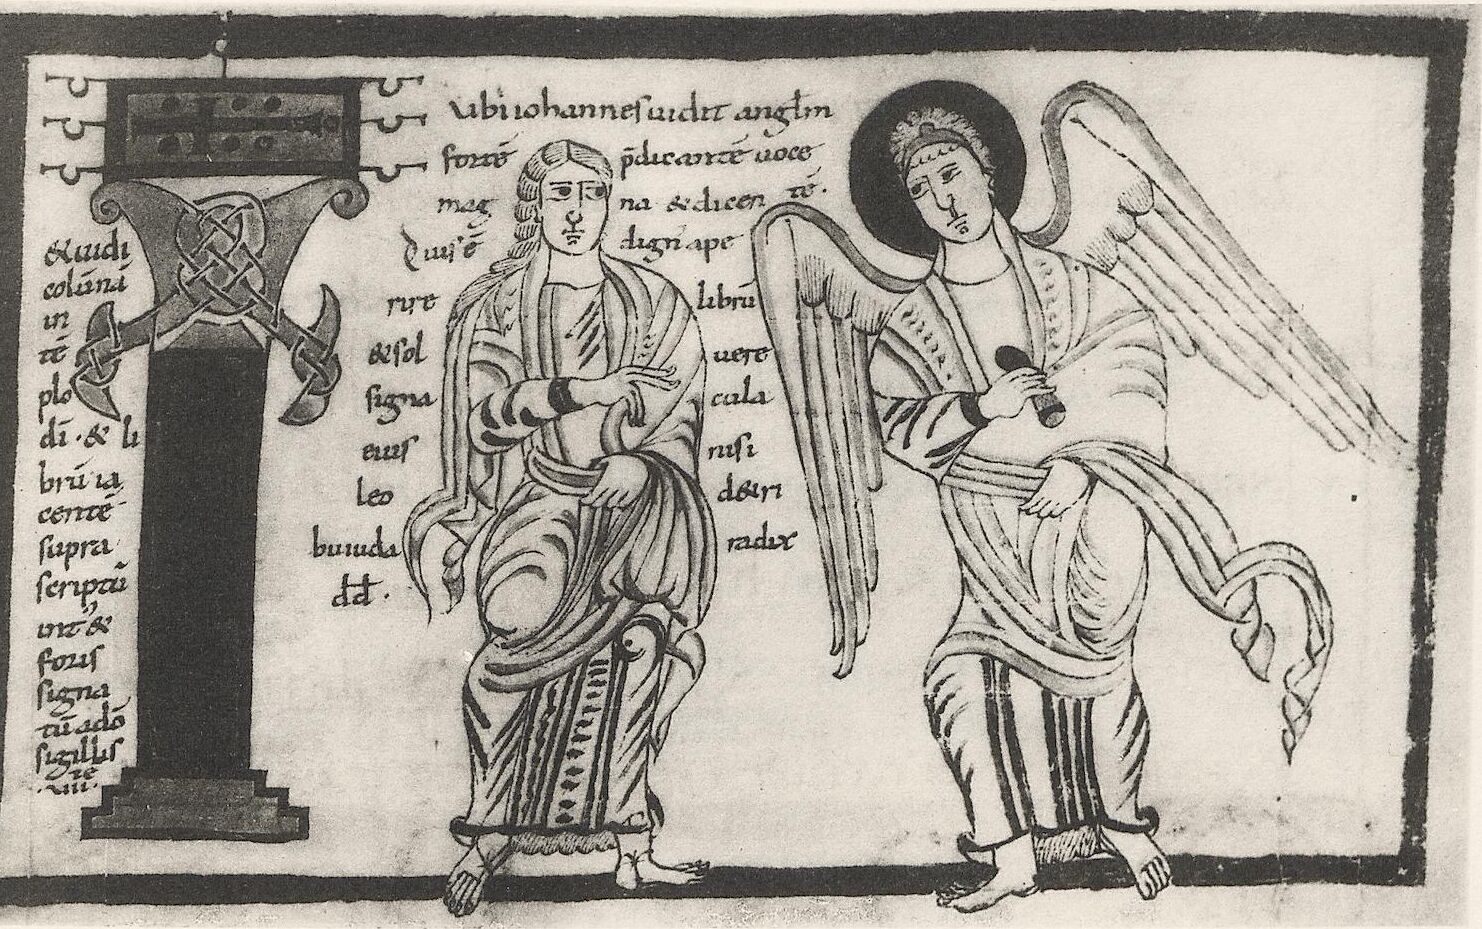 ubi iohannes uidit anglm
forte p̄dicantē uoce
mag na & dicen tē·
Quis ē dign' ape
rire librū
& sol uere
signa cula
eius nisi
leo d&ri
buiuda radix
dd̄·
& uidi
colūnā
in
tē
plo
dī · & li
brū ia
centē
supra
scriptū
int' &
foris
signa
tū adō
sigillis
·uii·